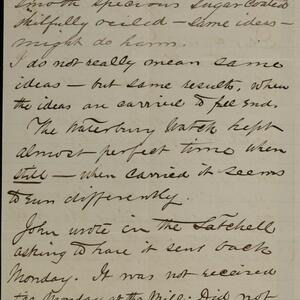 smooth specious sugar coated
skilfully veiled — same ideas —
might do harm.
I do not really mean same
ideas — but same results, when
the ideas are carried to full end.
The Waterbury Watch kept
almost perfect time when
still — when carried it seems
to run differently.
John wrote in the Satchell
asking to have it sent back
Monday. It was not received
for Monday at the Mill. Did not